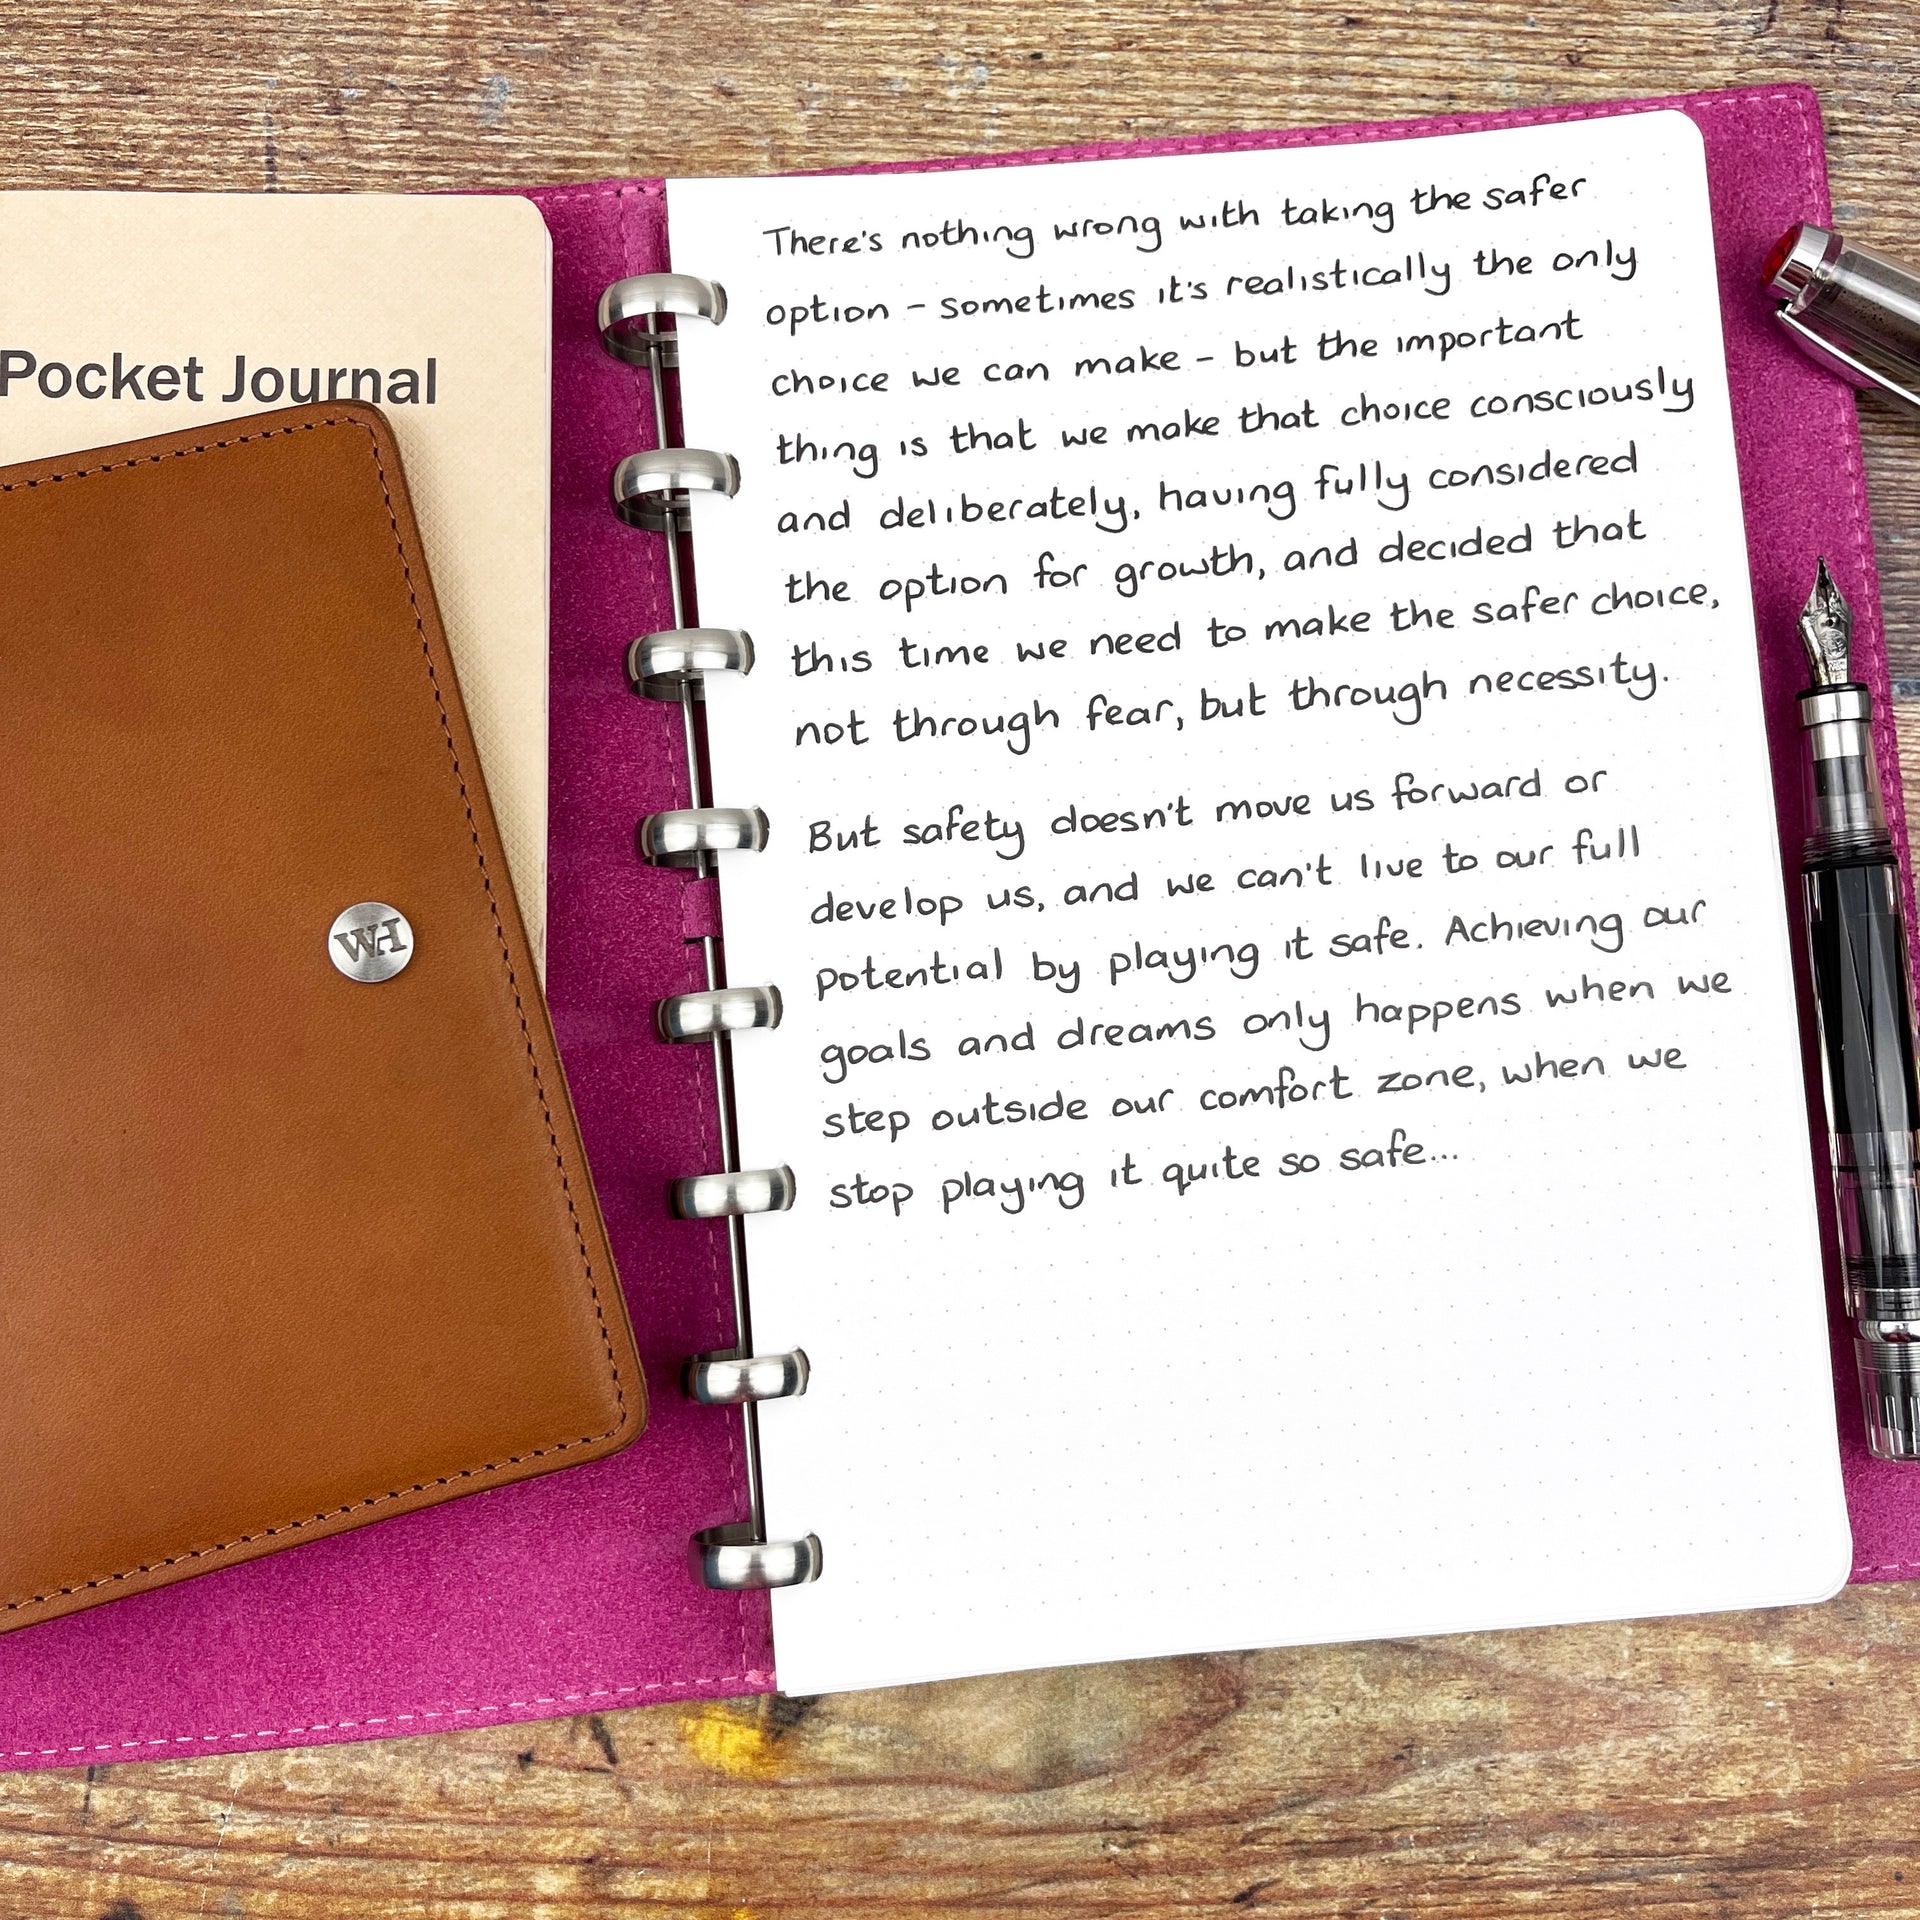 Pocket Journal
WH
There's nothing wrong with taking the safer
option - sometimes it's realistically the only
choice we can make - but the important
thing is that we make that choice consciously
and deliberately, having fully considered
the option for growth, and decided that
this time we need to make the safer choice,
not through fear, but through necessity.
But safety doesn't move us forward or
develop us, and we can't live to our full
potential by playing it safe. Achieving our
goals and dreams only happens when we
step outside our comfort zone, when we
stop playing it quite so safe...